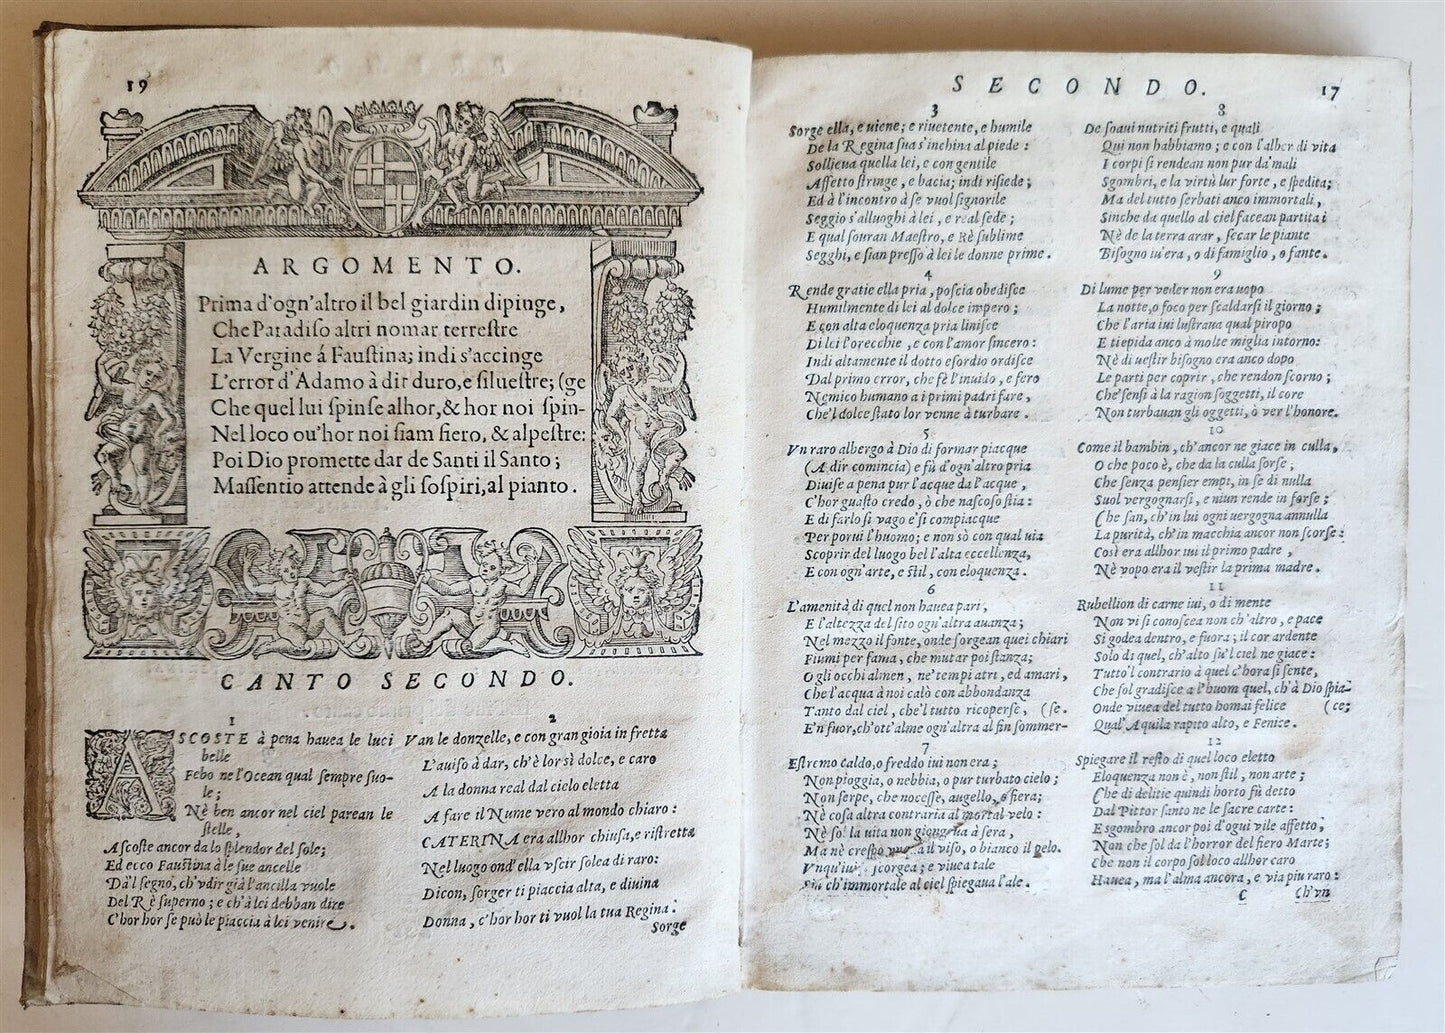 19
ARGOMENTO.
Prima d'ogn'altro il bel giardin dipinge,
Che Paradiſo altri nomar terreſtre
La Vergine á Fauſtina; indi s'accinge
L'error d'Adamo à dir duro, e ſilueſtre; (ge
Che quel lui ſpinſe alhor, & hor noi ſpin-
Nel loco ou'hor noi ſiam fiero, & alpeſtre:
Poi Dio promette dar de Santi il Santo;
Maſſentio attende à gli ſoſpiri, al pianto.
CANTO SECONDO.
1
ASCOSTE à pena hauea le luci
belle
Febo ne l'Ocean qual ſempre ſuo-
le;
Nè ben ancor nel ciel parean le
ſtelle,
Aſcoſte ancor da lo ſplendor del ſole;
Ed ecco Fauſtina à le ſue ancelle
Dà'l ſegno, ch'vdir già l'ancilla vuole
Del Rè ſuperno; e ch'à lei debban dire
C'hor hor ſe può le piaccia à lei venire.
2
Van le donzelle, e con gran gioia in fretta
L'auiſo à dar, ch'è lor sì dolce, e caro
A la donna real dal cielo eletta
A fare il Nume vero al mondo chiaro:
CATERINA era allhor chiuſa, e riſtretta
Nel luogo ond'ella vſcir ſolea di raro:
Dicon, ſorger ti piaccia alta, e diuina
Donna, c'hor hor ti vuol la tua Regina.
Sorge
SECONDO. 17
3
Sorge ella, e uiene; e riuetente, e humile
De la Regina ſua s'inchina al piede:
Solleua quella lei, e con gentile
Affetto ſtringe, e bacia; indi riſiede;
Ed à l'incontro à ſe vuol ſignorile
Seggio s'alluoghi à lei, e real ſede;
E qual ſouran Maeſtro, e Rè ſublime
Segghi, e ſian preſſo à lei le donne prime.
4
Rende gratie ella pria, poſcia obediſce
Humilmente di lei al dolce impero;
E con alta eloquenza pria liniſce
Di lei l'orecchie, e con l'amor ſincero:
Indi altamente il dotto eſordio ordiſce
Dal primo error, che fè l'inuido, e fero
Nemico humano a i primi padri fare,
Che'l dolce ſtato lor venne à turbare.
5
Vn raro albergo à Dio di formar piacque
(A dir comincia) e fù d'ogn'altro pria
Diuiſe a pena pur l'acque da l'acque,
C'hor guaſto credo, ò che naſcoſo ſtia:
E di farlo ſi vago e'ſi compiacque
Per porui l'huomo; e non sò con qual uia
Scoprir del luogo bel l'alta eccellenza,
E con ogn'arte, e ſtil, con eloquenza.
6
L'amenità di quel non hauea pari,
E l'altezza del ſito ogn'altra auanza;
Nel mezzo il fonte, onde ſorgean quei chiari
Fiumi per fama, che mutar poi ſtanza;
Ogli occhi almen, ne'tempi atri, ed amari,
Che l'acqua à noi calò con abbondanza
Tanto dal ciel, che'l tutto ricoperſe, (ſe.
E'n fuor, ch'ott'alme ogn'altra al fin ſommer-
7
Eſtremo caldo, o freddo iui non era;
Non pioggia, o nebbia, o pur turbato cielo;
Non ſerpe, che noceſſe, augello, o fiera;
Nè coſa altra contraria al mortal velo:
Nè ſo' la uita non giongeua à ſera,
Ma nè creſpo il viſo, o bianco il pelo.
Vnqu'iui ſcorgea; e viuea tale
ch'immortale al ciel ſpiegaua l'ale.
8
De ſoaui nutriti frutti, e quali
Qui non habbiamo; e con l'alber di vita
I corpi ſi rendean non pur da'mali
Sgombri, e la virtù lur forte, e ſpedita;
Ma del tutto ſerbati anco immortali,
Sinche da quello al ciel facean partita:
Nè de la terra arar, ſecar le piante
Biſogno iu'era, o di famiglio, o fante.
9
Di lume per veder non era uopo
La notte, o foco per ſcaldarſi il giorno;
Che l'aria iui luſtraua qual piropo
E tiepida anco à molte miglia intorno:
Nè di ueſtir biſogno era anco dopo
Le parti per coprir, che rendon ſcorno;
Che'ſenſi à la ragion ſoggetti, il core
Non turbauan gli oggetti, ò ver l'honore.
10
Come il bambin, ch'ancor ne giace in culla,
O che poco è, che da la culla ſorſe;
Che ſenza penſier empi, in ſe di nulla
Suol vergognarſi, e niun rende in forſe;
Che ſan, ch'in lui ogni uergogna annulla
La purità, ch'in macchia ancor non ſcorſe:
Così era allhor iui il primo padre,
Nè vopo era il veſtir la prima madre.
11
Rubellion di carne iui, o di mente
Non vi ſi conoſcea non ch'altro, e pace
Si godea dentro, e fuora; il cor ardente
Solo di quel, ch'alto ſu'l ciel ne giace:
Tutto'l contrario à quel c'hora ſi ſente,
Che ſol gradiſce a l'huom quel, ch'à Dio ſpia-
Onde viuea del tutto homai felice (ce;
Qual'Aquila rapito alto, e Fenice.
12
Spiegare il reſto di quel loco eletto
Eloquenza non è, non ſtil, non arte;
Che di delitie quindi horto fù detto
Dal Pittor ſanto ne le ſacre carte:
E sgombro ancor poi d'ogni vile affetto,
Non che ſol da l'horror del fiero Marte;
Che non il corpo ſol loco allhor caro
Hauea, ma l'alma ancora, e via piu raro:
C Ch'vn